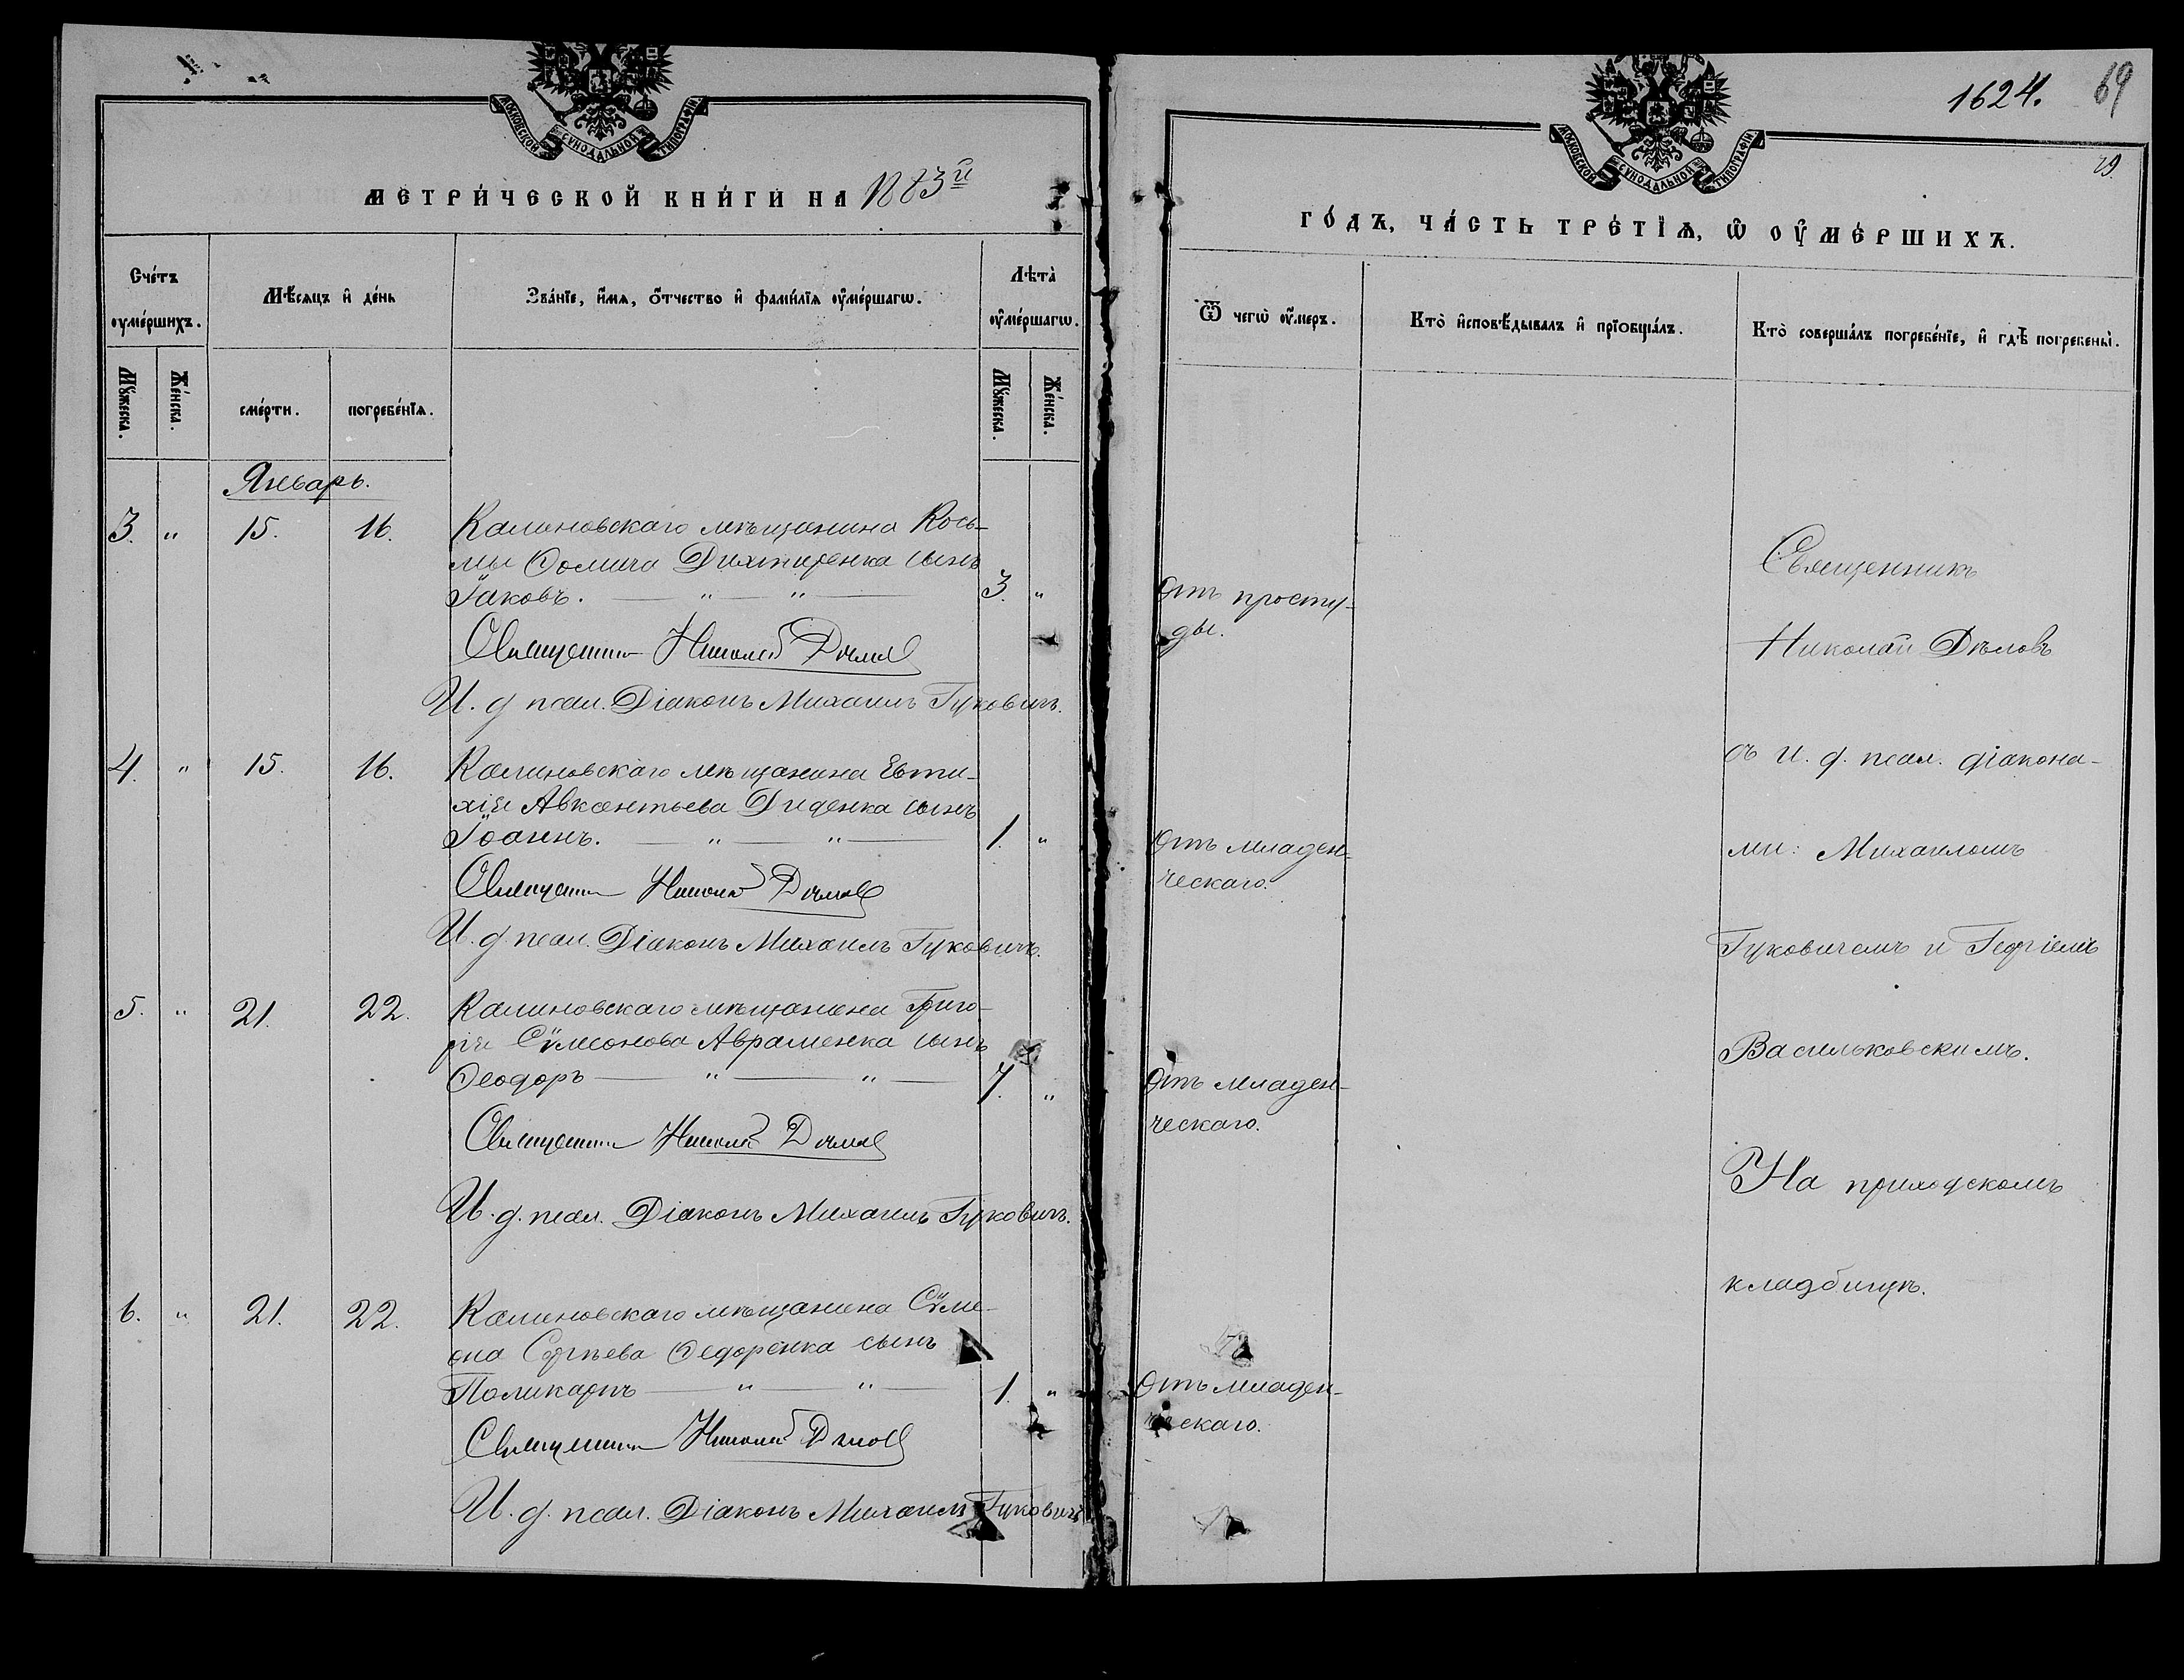 МОСКОВСКОЙ СѴНОДАЛЬНОЙ ТИПОГРАФІИ
МЕТРИ́ЧЕСКОЙ КНИ́ГИ НА 1883й
Сче́тъ ѹме́ршихъ.
Мѣ́сяцъ и҆ де́нь
Зва́нїе, и҆́мѧ, ѻ҆́тчество и҆ фами́лїѧ ѹ҆ме́ршагѡ.
Лѣта̀ ѹ҆ме́ршагѡ.
Мꙋ́жеска.
Же́нска.
сме́рти.
погребе́нїѧ.
Мꙋ́жеска.
Же́нска.
Январь.
3. " 15. 16. Калиновскаго мѣщанина Кось-
мы Ѳомича Дихтяренка сынъ
Іаковъ. — " — " — 3. "
Священникъ Николай Дѣлов
И. д. псал. Діаконъ Михаилъ Гуковичъ.
4. " 15. 16. Калиновскаго мѣщанина Евти-
хія Авксентьева Диденка сынъ
Іоаннъ. — " — " — 1. "
Священникъ Николай Дѣлов
И. д. псал. Діаконъ Михаилъ Гуковичъ.
5. " 21. 22. Калиновскаго мѣщанина Григо-
рія Сѵмеонова Авраменка сынъ
Ѳеодоръ — " — " — 7. "
Священникъ Николай Дѣлов
И. д. псал. Діаконъ Михаилъ Гуковичъ.
6. " 21. 22. Калиновскаго мѣщанина Сѵме-
она Сергѣева Ѳедоренка сынъ
Поликарпъ — " — " — 1. "
Священникъ Николай Дѣлов
И. д. псал. Діаконъ Михаилъ Гуковичъ
1624. 69
МОСКОВСКОЙ СѴНОДАЛЬНОЙ ТИПОГРАФІИ
ГО́ДЪ, ЧА́СТЬ ТРЕ́ТЇѦ, Ѡ҆ ОУ҆МЕ́РШИХЪ.
Ѿ чегѡ̀ ѹ҆́меръ.
Кто̀ и҆сповѣ́дывалъ и҆ прїобща́лъ.
Кто̀ соверша́лъ погребе́нїе, и҆ гдѣ̀ погребены̀.
Отъ просту-
ды.
Отъ младен-
ческаго.
Отъ младен-
ческаго.
Отъ младен-
ческаго.
Священникъ
Николай Дѣловъ
съ И. д. псал. діакона-
ми: Михаиломъ
Гуковичемъ и Георгіемъ
Васильковскимъ.
На приходскомъ
кладбищѣ.